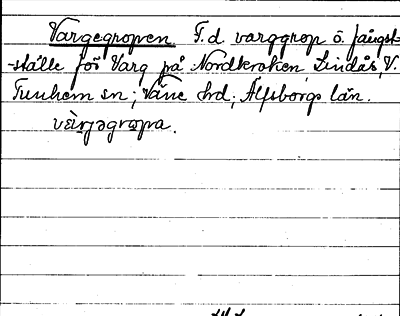 Vargegropen F.d varggrop o. fångst-
-ställe för Varg på Nordkroken, Lindås, V.
Tunhem sn; Väne hd; Älfsborgs län.
vèrjəgropa.